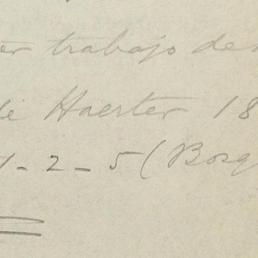 er trabajo de
de Haerter 18
1-2-5 (Borg